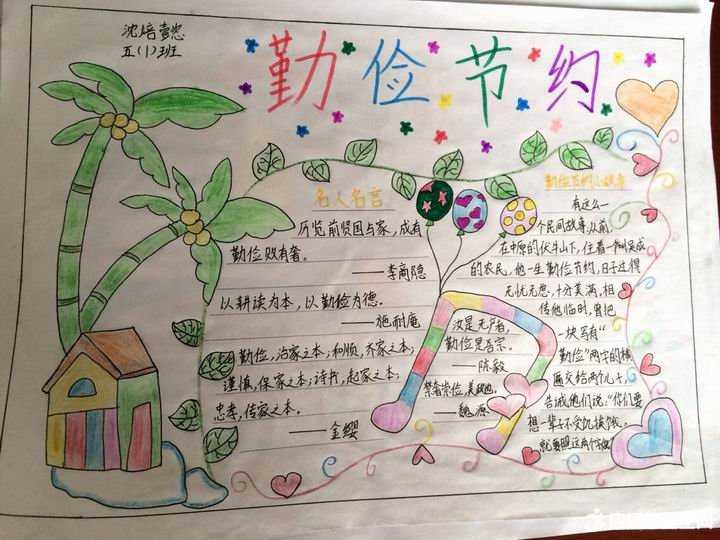 沈焙壹
五(1)班
勤俭节约
名人名言
历览前贤国与家,成有
勤俭败有奢。
——李商隐
以耕读为本,以勤俭为德。
——施耐庵
勤俭,治家之本;和顺,齐家之本;
谨慎,保家之本;诗书,起家之本;
忠孝,传家之本。
——金缨
汝是无户者,
勤俭是吾宗。
——陈毅
禁奢崇俭,美政也。
——魏源
勤俭节约小故事
有这么一
个民间故事,从前
在中原的伏牛山下,住着一个叫吴成
的农民,他一生勤俭节约,日子过得
无忧无愁,十分美满,相
传他临时,曾把
一块写有"
勤俭"两字的横
匾交给两个儿子,
告诫他们说:"你们要
想一辈子不受饥挨饿,
就要照这两个字做